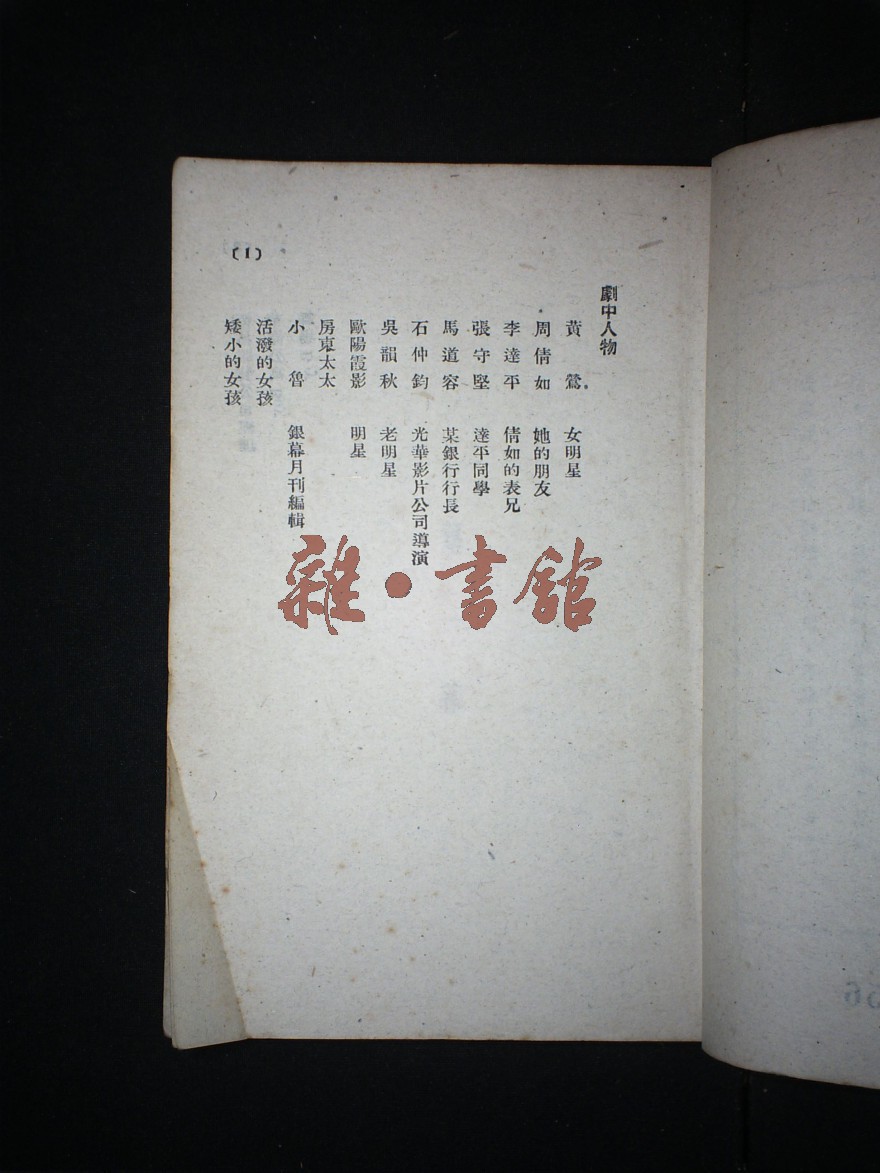 劇中人物
黃鶯 女明星
周倩如 她的朋友
李達平 倩如的表兄
張守堅 達平同學
馬道容 某銀行行長
石仲鈞 光華影片公司導演
吳韻秋 老明星
歐陽霞影 明星
房東太太
小魯 銀幕月刊編輯
活潑的女孩
矮小的女孩
(1)
雜·書館